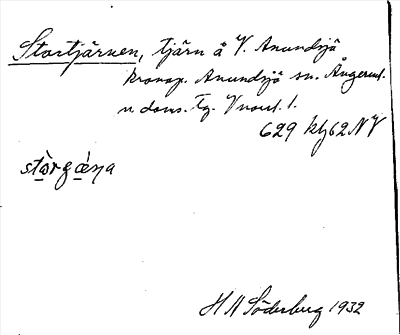 Stortjärnen, tjärn å V. Anundsjö
kronop. Anundsjö sn. Ångerml.
n doms. Tg.
629 Kbg 62 NV
stòrgǽŋa
H N Söderberg 1932